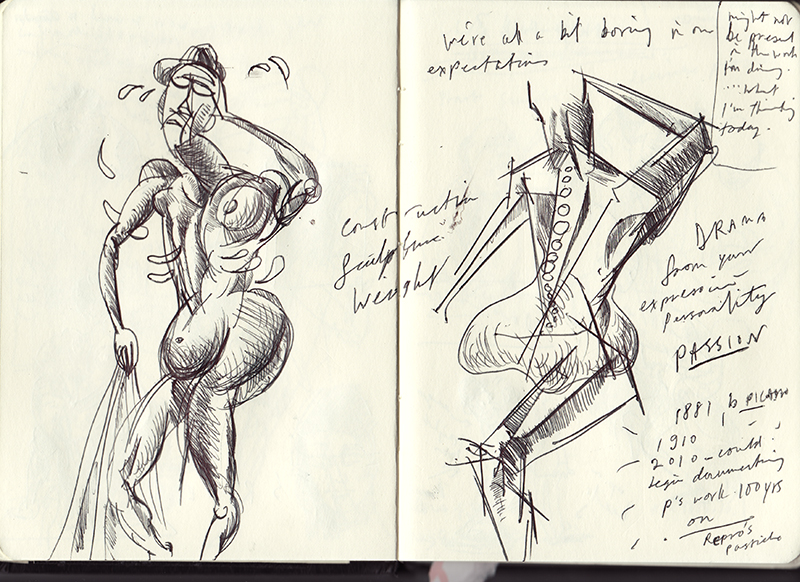 we're all a bit boring in our
expectations
might not
be present
in the work
I'm doing.
...what
I'm thinking
today.
construction
sculpture
weight
DRAMA
from your
expression
Personality
PASSION
1881 b PICASSO
1910
2010 - could
begin documenting
P's work 100 yrs
on
Repro's
pastiche